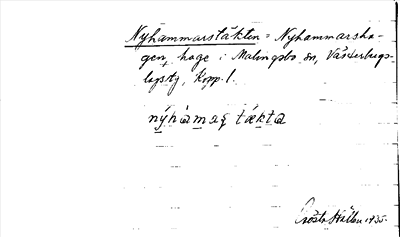 Nyhammarstäkten = Nyhammarsha-
gen, hage i Malingsbo sn, Västerbergs-
lagsty, Kopp. l.
nýhàmaṣ tækta
Gösta 1935.